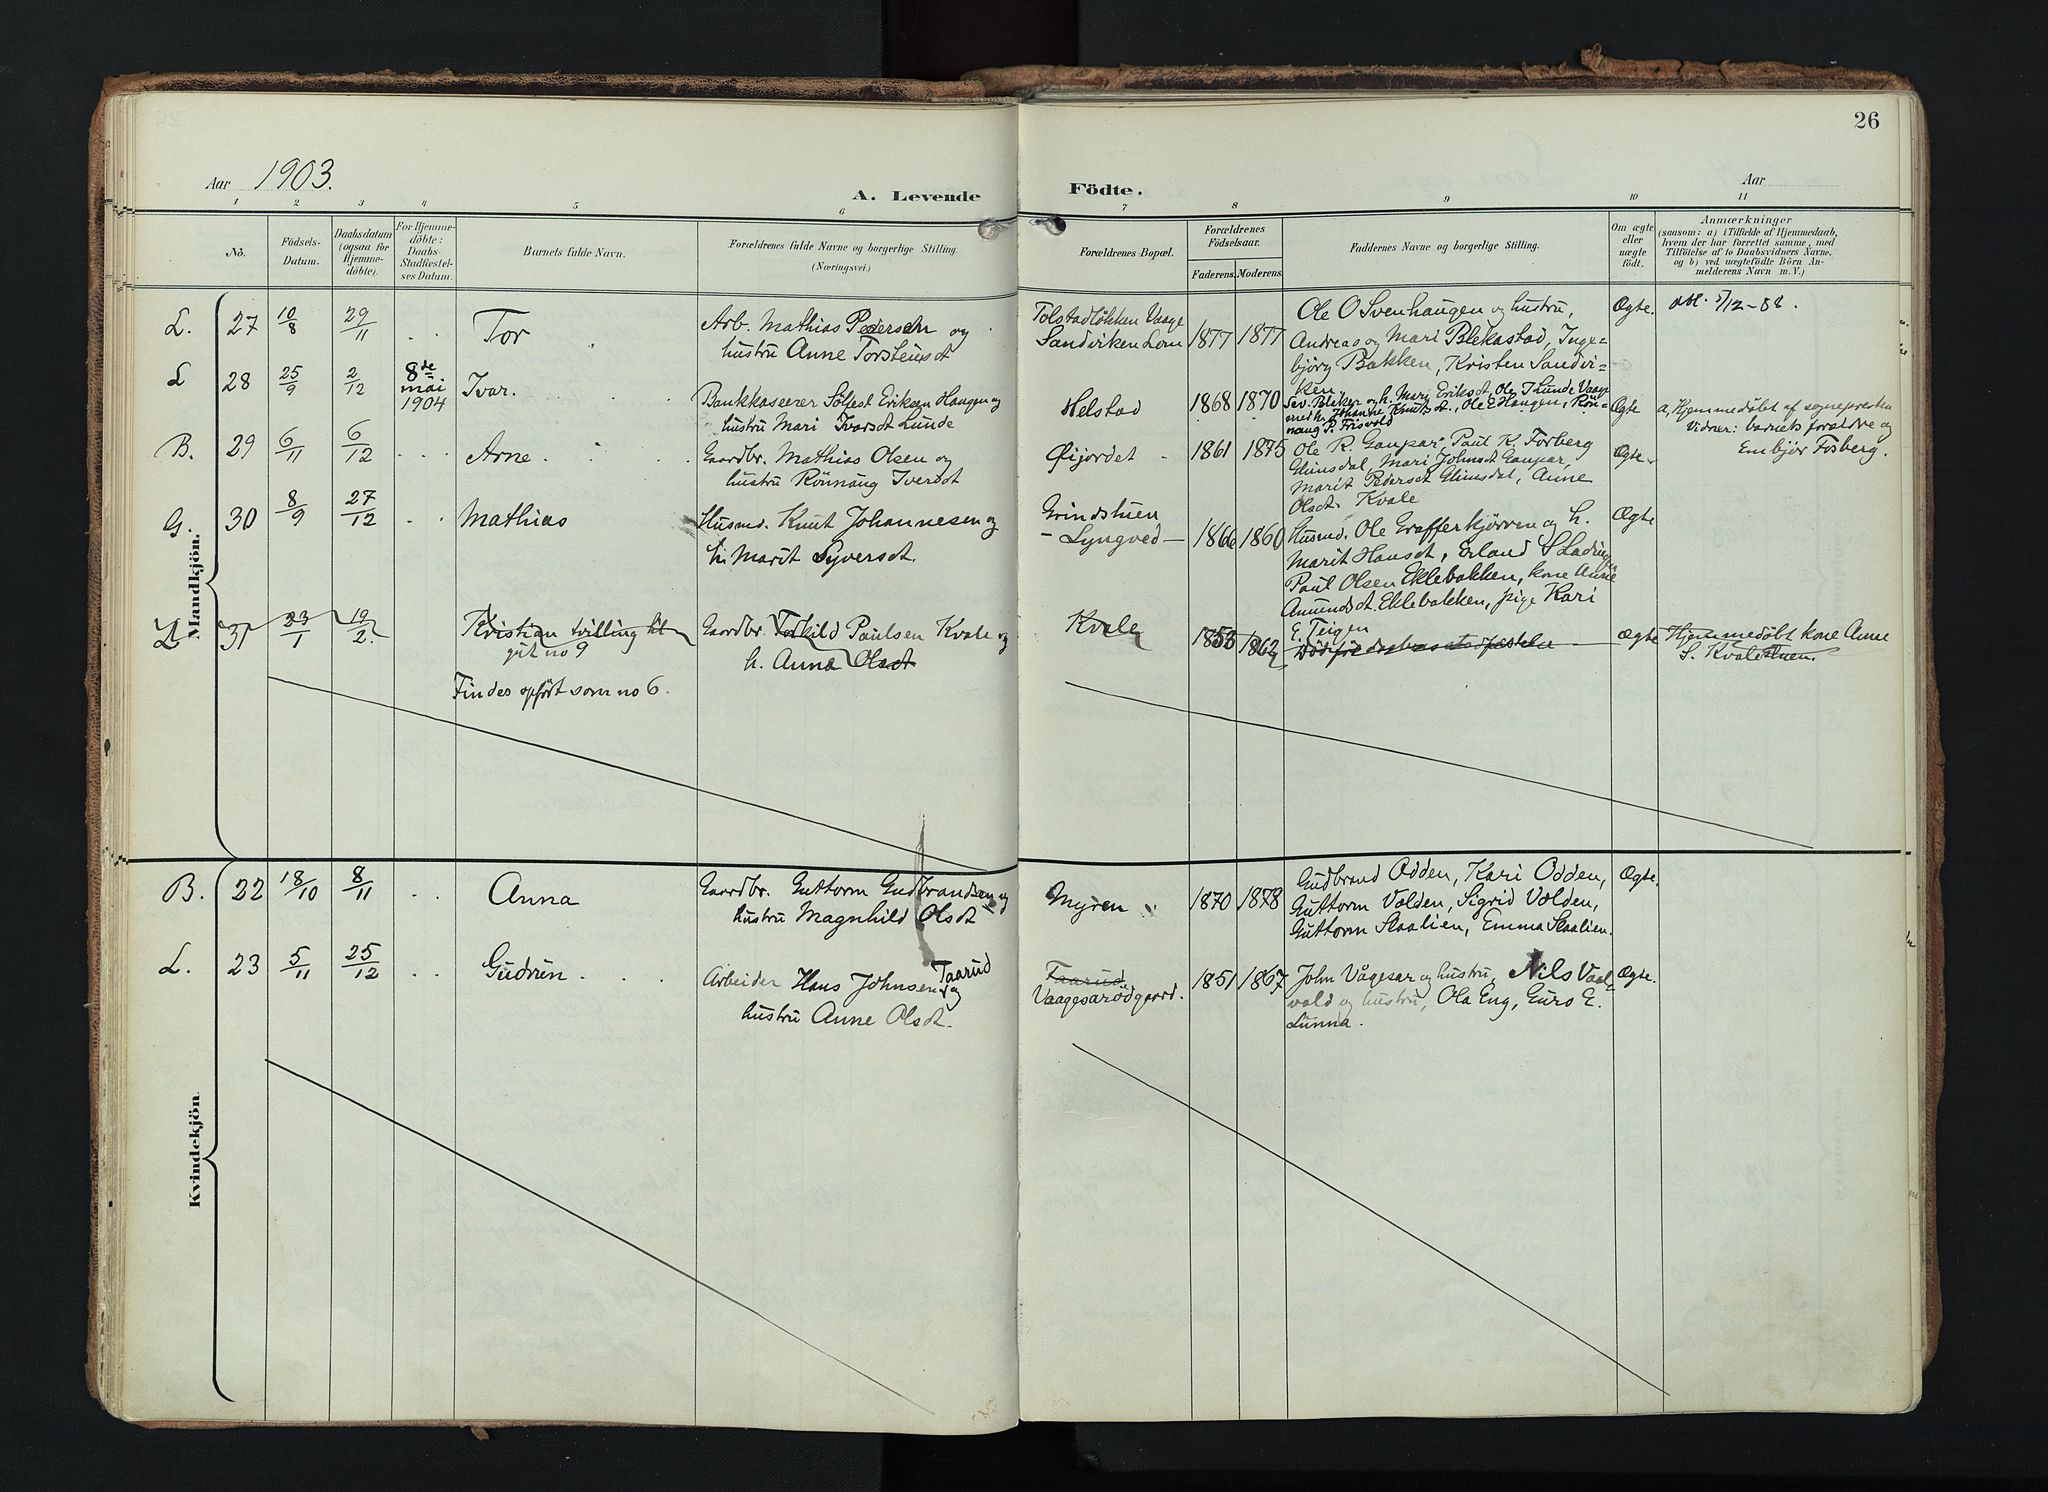 26
Aar 1903.
A. Levende Födte.
Aar
1 2 3 4 5 6 7 8 9 10 11
No.
Födsels-
Datum.
Daabsdatum
(ogsaa for
Hjemme-
döbte).
For Hjemme-
döbte:
Daabs-
Stadfæstel-
ses Datum.
Barnets fulde Navn.
Forældrenes fulde Navne og borgerlige Stilling.
(Næringsvei.)
Forældrenes Bopæl.
Forældrenes
Födselsaar.
Faderens. Moderens.
Faddernes Navne og borgerlige Stilling.
Om ægte
eller
uægte
födt.
Anmærkninger
(saasom: a) i Tilfælde af Hjemmedaab,
hvem der har forrettet samme, med
Tilföielse af to Daabsvidners Navne,
og b) ved uægtefödte Börn An-
melderens Navn m. V.)
Mandkjön.
L. 27 10/8 29/11 Tor
Arb. Mathias Pedersen og
hustru Anne Torsteinsdt
Tolstadløkken Vaage
Sandviken Lom
1877 1877
Ole O Svenhaugen og hustru,
Andreas og Mari Blekastad, Inge-
björg Bakken, Kristen Sandvi-
ken
Ægte. 5/12-88.
L 28 25/9 2/12 8de
mai
1904
Ivar.
Bankkaserer Sölfest Eriksen Haugen og
hustru Mari Ivarsdt Lunde
Helstad
1868 1870
Sev. Bliker og h. Mary Eriksdt, Ole I Lunde Vaage
med h. Johanne Knutsdt., Ole E Haugen, Rön-
naug P. Frisvold
Ægte
a, Hjemmedøbt af sognepresten
Vidner: barnets forældre og
Embjör Fosberg.
B. 29 6/11 6/12 Arne
Gaardbr. Mathias Olsen og
hustru Rönnaug Iversdt
Øijordet
1861 1875
Ole R. Gaupar Paul K. Forberg
Glimsdal, Mari Johnsdt Gaupar,
Marit Pedersdt Glimsdal, Anne
Olsdt. Kvale
Ægte
G. 30 8/9 27/12 Mathias
Husmd. Knut Johannesen og
h. Marit Syversdt.
Grindstuen
- Lyngved -
1866 1860
Husmd. Ole Grafferkjörren og h.
Marit Hansdt, Erland S Lading
Paul Olsen Eklebakken, kone Anne
Amundsdt. Eklebakken, pige Kari
E. Teigen
Ægte
L 31 23/1 19/2. Kristian tvilling til
git no 9
Findes opfört som no 6.
Gaardbr. Torkild Paulsen Kvale og
h. Anna Olsdt
Kvale
1855 1862
Ægte
Hjemmedøbt kone Anne
S. Kvalestuen.
Kvindekjön.
B. 22 18/10 8/11 Anna
Gaardbr. Guttorm Gudbrandsen og
hustru Magnhild Olsdt
Myren
1870 1878
Gudbrand Odden, Kari Odden,
Guttorm Volden, Sigrid Volden,
Guttorm Skaalien, Emma Skaalien.
Ægte.
L. 23 5/11 25/12 Gudrun
Arbeider Hans Johnsen Taarud og
hustru Anne Olsdt.
Taarud
Vaagesarödgaard.
1851 1867
John Vågesar og hustru, Nils Vaal-
vold og hustru, Ola Eng, Guro E.
Lunna.
Ægte.